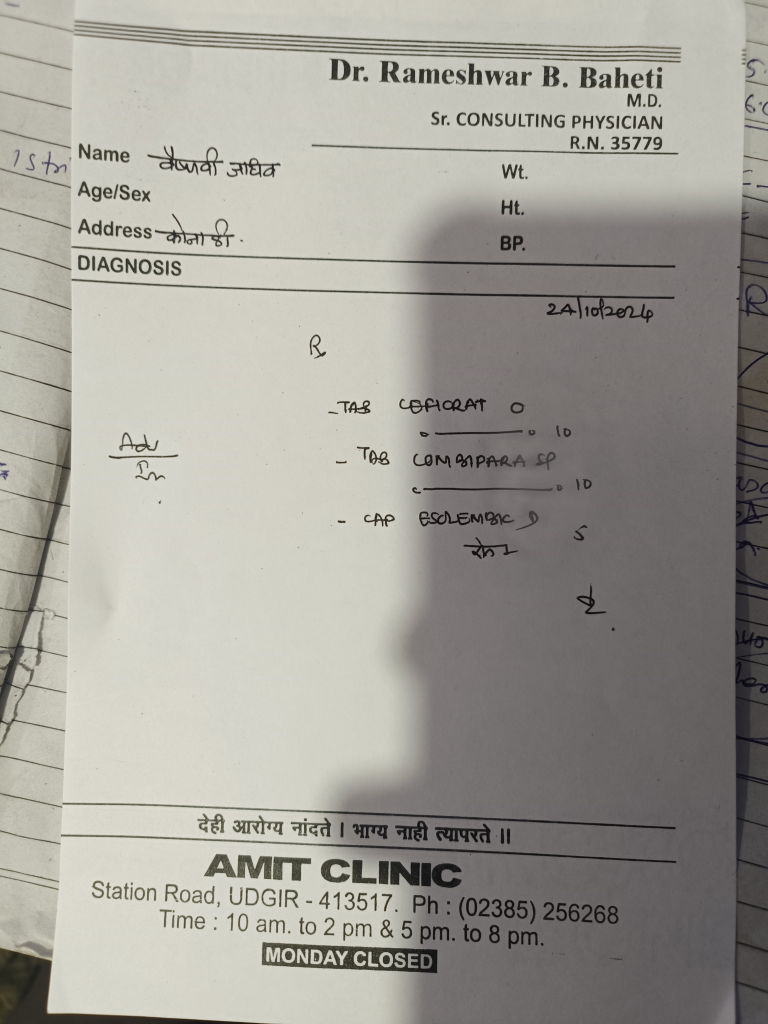 Dr. Rameshwar B. Baheti
M.D.
Sr. CONSULTING PHYSICIAN
R.N. 35779
Name वैष्णवी जाधव Wt.
Age/Sex Ht.
Address कोनाळी. BP.
DIAGNOSIS
24/10/2024
Rx
- TAB CEFIORAT O
10
Adv
- TAB COMBIPARA SP
10
- CAP ESOLEMBIC D 5
देही आरोग्य नांदते । भाग्य नाही त्यापरते ॥
AMIT CLINIC
Station Road, UDGIR - 413517. Ph : (02385) 256268
Time : 10 am. to 2 pm & 5 pm. to 8 pm.
MONDAY CLOSED